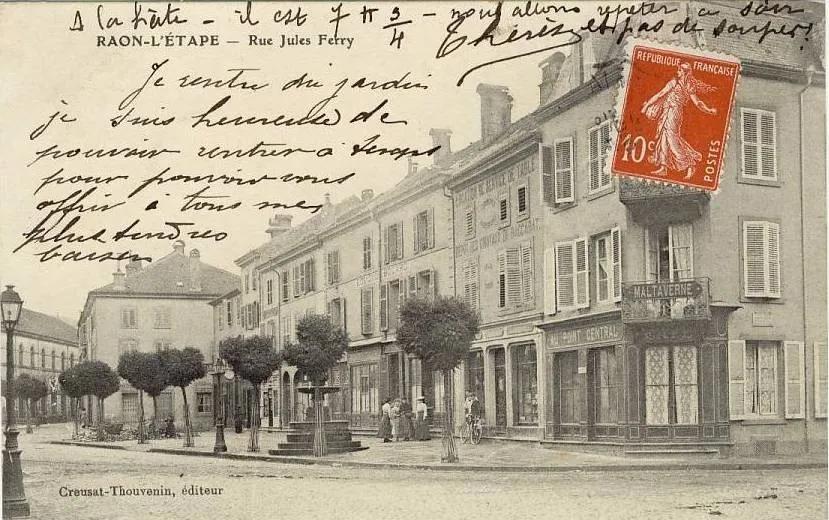 A la hâte - il est 7 h 3/4 - nous allons répéter à son
Thérèse et pas de souper!
RAON-L'ÉTAPE — Rue Jules Ferry
Je rentre du jardin
je suis heureuse de
pouvoir rentrer à temps
pour pouvoir vous
offrir à tous mes
plus tendres
baisers
REPUBLIQUE FRANÇAISE
10c
POSTES
SERVICE DE TABLE
MALTAVERNE
AU POINT CENTRAL
Creusat-Thouvenin, éditeur